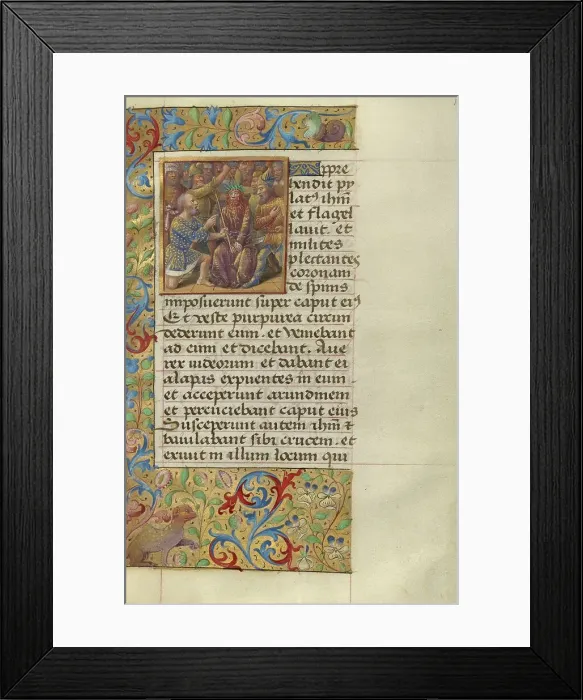 Appre
hendit py
lat⁹ ihm̄
et flagel
lauit. et
milites
plectantes
coronam
de spinis
imposuerunt super caput ei⁹
Et veste purpurea circun
dederunt eum. et veniebant
ad eum et dicebant. Aue
rex iudeorum et dabant ei
alapas expuentes in eum.
et acceperunt arundinem
et percuciebant caput eius
Susceperunt autem ihm̄ et
baiulabant sibi crucem. et
exiuit in illum locum qui